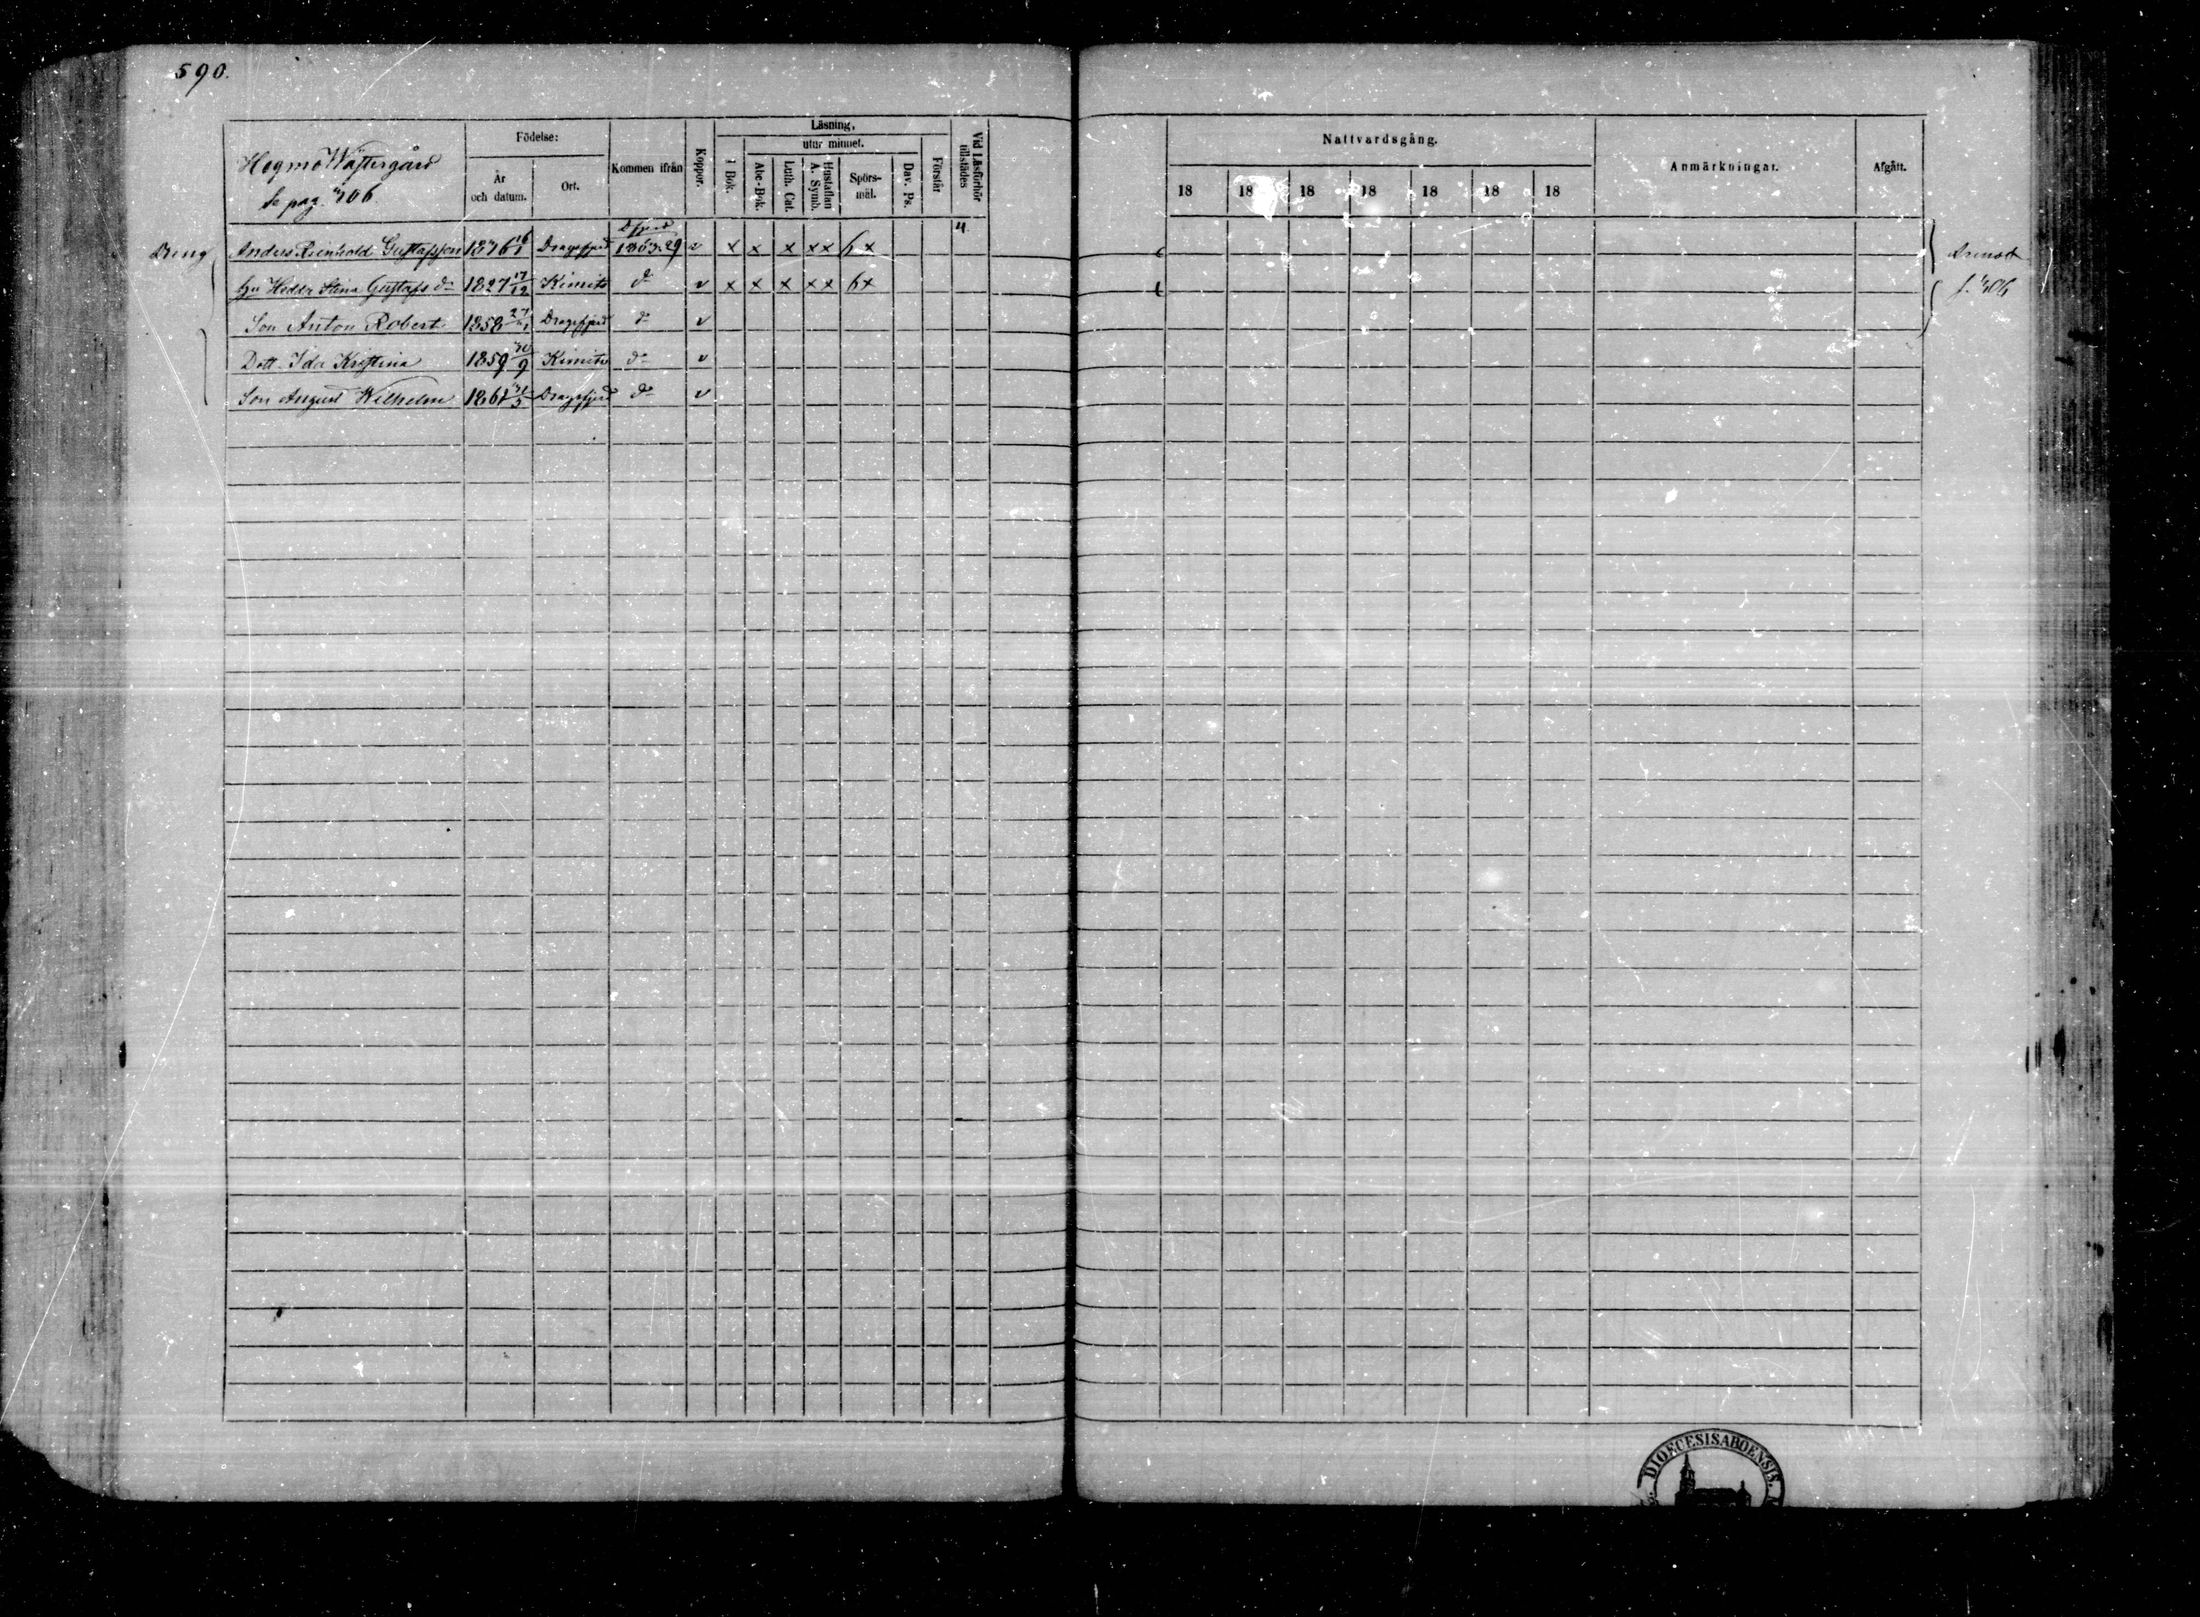 590.
Högmo Wästergård
se pag. 406
Födelse:
År och datum.
Ort.
Kommen ifrån
Koppor.
Läsning,
utur minnet.
i Bok.
Abc-Bok.
Luth. Cat.
Hustaflan A. Symb.
Spörs-mål.
Dav. Ps.
Förstår
Vid Läsförhör tillstädes
Nattvardsgång.
18 18 18 18 18 18 18
Anmärkningar.
Afgått.
Dfjerd
Dreng Anders Reinhold Gustafsson 16/1 Dragsfjerd 1863.29 v x x x x x 6 x
hu Hedda Stina Gustafs dr 1827 17/12 Kimito do v x x x x x 6 x
Son Anton Robert 1858 Dragsfjerd do v
Dott. Ida Kristina 1859 Kimito do v
Son August Wilhelm 1861 Dragsfjerd do v
f. 406
DIOECESIS ABOENSIS.